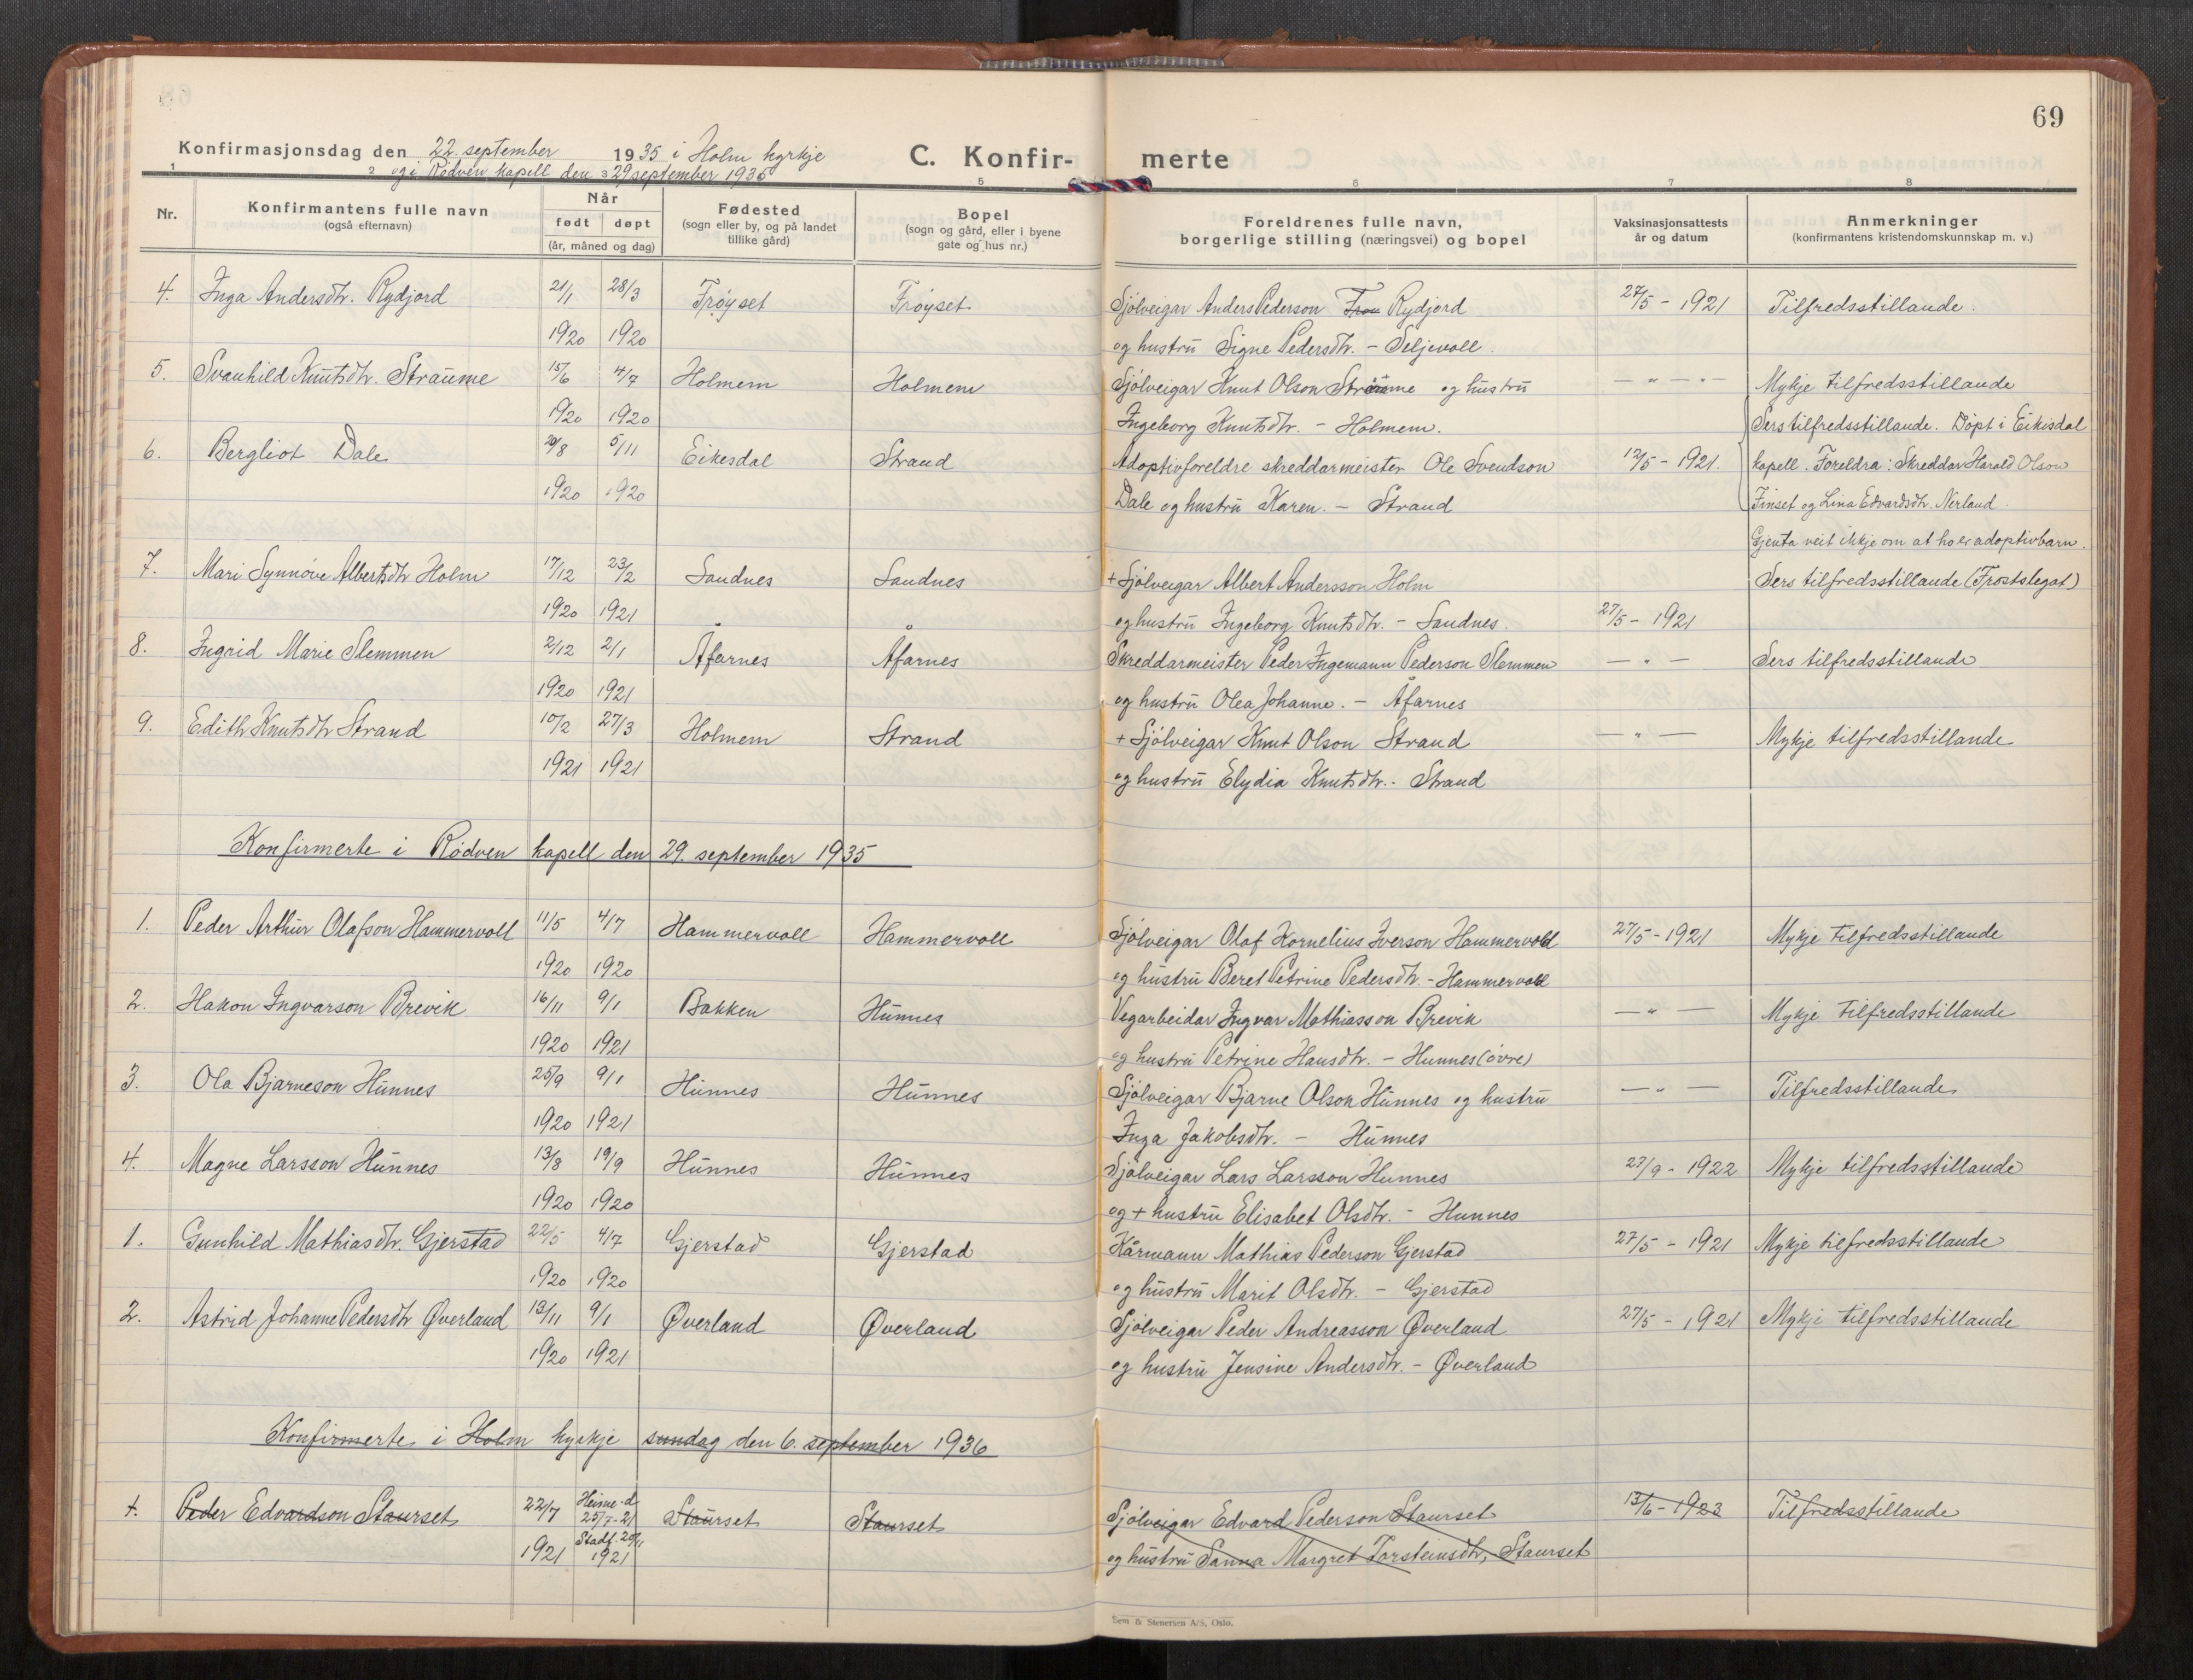 69
Konfirmasjonsdag den 22. september 1935 i Holm kyrkje
og i Rødven kapell den 29 september 1935
C. Konfirmerte
1 2 3 5 6 7 8
Nr. Konfirmantens fulle navn (også efternavn) Når født døpt (år, måned og dag) Fødested (sogn eller by, og på landet tillike gård) Bopel (sogn og gård, eller i byene gate og hus nr.) Foreldrenes fulle navn, borgerlige stilling (næringsvei) og bopel Vaksinasjonsattests år og datum Anmerkninger (konfirmantens kristendomskunnskap m. v.)
4. Inga Andersdtr. Rydjord 21/1 28/3 Frøyset Frøyset Sjølveigar Anders Pederson Rydjord 27/5 - 1921 Tilfredsstillande.
1920 1920 og hustru Signe Pedersdtr. - Seljevoll.
5. Svanhild Knutsdtr. Straume 15/6 4/7 Holmem Holmem Sjølveigar Knut Olson Straume og hustru — " — " — Mykje tilfredsstillande
1920 1920 Ingeborg Knutsdtr. - Holmem. Sers tilfredsstillande. Døpt i Eikisdal
6. Bergliot Dale 20/8 5/11 Eikesdal Strand Adoptivforeldre skreddarmeister Ole Svendson 12/5 - 1921. kapell. Foreldra: Skreddar Harald Olson
1920 1920 Dale og hustru Karen. - Strand Finset og Lina Edvardsdtr. Nerland.
Gjenta veit ikkje om at ho er adoptivbarn.
7. Mari Synnøve Albertsdtr Holm 17/12 23/2 Sandnes Sandnes + Sjølveigar Albert Andersson Holm Sers tilfredsstillande (Frostslegat)
1920 1921 og hustru Ingeborg Knutsdtr. - Sandnes. 27/5 - 1921
8. Ingrid Marie Slemmen 2/12 2/1 Åfarnes Åfarnes Skreddarmeister Peder Ingemann Pederson Slemmen — " — Sers tilfredsstillande
1920 1921 og hustru Olea Johanne. - Åfarnes
9. Edith Knutsdtr Strand 10/2 27/3 Holmem Strand + Sjølveigar Knut Olson Strand — " — Mykje tilfredsstillande
1921 1921 og hustru Elydia Knutsdtr. - Strand
Konfirmerte i Rødven kapell den 29. september 1935
1. Peder Arthur Olafson Hammervoll 11/5 4/7 Hammervoll Hammervoll Sjølveigar Olaf Kornelius Iverson Hammervold 27/5 - 1921 Mykje tilfredsstillande
1920 1920 og hustru Beret Petrine Pedersdtr. - Hammervoll
2. Hakon Ingvarson Brevik 16/11 9/1 Bakken Hunnes Vegarbeidar Ingvar Mathiasson Brevik — " — Mykje tilfredsstillande
1920 1921 og hustru Petrine Hansdtr. - Hunnes (øvre)
3. Ola Bjarneson Hunnes 25/9 9/1 Hunnes Hunnes Sjølveigar Bjarne Olson Hunnes og hustru — " — Tilfredsstillande
1920 1921 Inga Jakobsdtr. - Hunnes
4. Magne Larsson Hunnes 13/8 19/9 Hunnes Hunnes Sjølveigar Lars Larsson Hunnes 27/9 - 1922 Mykje tilfredsstillande
1920 1920 og + hustru Elisabet Olsdtr. - Hunnes
1. Gunhild Mathiasdtr. Gjerstad 22/5 4/7 Gjerstad Gjerstad Kårmann Mathias Pederson Gjerstad 27/5 - 1921 Mykje tilfredsstillande
1920 1920 og hustru Marit Olsdtr. - Gjerstad
2. Astrid Johanne Pedersdtr Øverland 13/11 9/1 Øverland Øverland Sjølveigar Peder Andreasson Øverland 27/5 - 1921 Mykje tilfredsstillande
1920 1921 og hustru Jensine Andersdtr. - Øverland
Konfirmerte i Holm kyrkje sundag den 6. september 1936
1. Peder Edvardson Staurset 22/7 Heime-d. 25/7-21 Staurset Staurset Sjølveigar Edvard Pederson Staurset 13/6 - 1923 Tilfredsstillande
1921 Stadf. 1921 og hustru Sanna Margret Torsteinsdtr, Staurset
Sem & Stenersen A/S, Oslo.